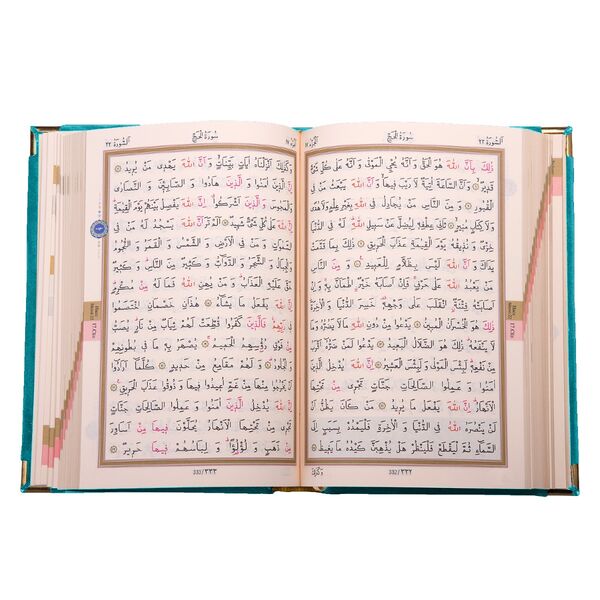 اَلسُّورَةُ ٢٢
سُورَةُ الْحَجِّ
ذٰلِكَ بِاَنَّ اللّٰهَ هُوَ الْحَقُّ وَ اَنَّهُ يُحْيِ الْمَوْتٰى وَ اَنَّهُ عَلٰى كُلِّ شَيْءٍ
قَدِيرٌ ۞ وَ اَنَّ السَّاعَةَ اٰتِيَةٌ لَا رَيْبَ فِيهَا وَ اَنَّ اللّٰهَ يَبْعَثُ مَنْ فِي
الْقُبُورِ ۞ وَ مِنَ النَّاسِ مَنْ يُجَادِلُ فِي اللّٰهِ بِغَيْرِ عِلْمٍ وَ لَا هُدًى
وَ لَا كِتَابٍ مُنِيرٍ ۞ ثَانِيَ عِطْفِهِ لِيُضِلَّ عَنْ سَبِيلِ اللّٰهِ لَهُ فِي الدُّنْيَا
خِزْيٌ وَ نُذِيقُهُ يَوْمَ الْقِيٰمَةِ عَذَابَ الْحَرِيقِ ۞ ذٰلِكَ بِمَا قَدَّمَتْ
يَدَاكَ وَ اَنَّ اللّٰهَ لَيْسَ بِظَلَّامٍ لِلْعَبِيدِ ۞ وَ مِنَ النَّاسِ مَنْ
يَعْبُدُ اللّٰهَ عَلٰى حَرْفٍ فَاِنْ اَصَابَهُ خَيْرٌ اطْمَاَنَّ بِهِ وَ اِنْ
اَصَابَتْهُ فِتْنَةٌ انْقَلَبَ عَلٰى وَجْهِهِ خَسِرَ الدُّنْيَا وَ الْاٰخِرَةَ
ذٰلِكَ هُوَ الْخُسْرَانُ الْمُبِينُ ۞ يَدْعُوا مِنْ دُونِ اللّٰهِ مَا لَا يَضُرُّهُ وَ مَا
لَا يَنْفَعُهُ ذٰلِكَ هُوَ الضَّلَالُ الْبَعِيدُ ۞ يَدْعُوا لَمَنْ ضَرُّهُ اَقْرَبُ
مِنْ نَفْعِهِ لَبِئْسَ الْمَوْلٰى وَ لَبِئْسَ الْعَشِيرُ ۞ اِنَّ اللّٰهَ يُدْخِلُ
الَّذِينَ اٰمَنُوا وَ عَمِلُوا الصَّالِحَاتِ جَنَّاتٍ تَجْرِي مِنْ تَحْتِهَا
الْاَنْهَارُ اِنَّ اللّٰهَ يَفْعَلُ مَا يُرِيدُ ۞ مَنْ كَانَ يَظُنُّ اَنْ لَنْ
يَنْصُرَهُ اللّٰهُ فِي الدُّنْيَا وَ الْاٰخِرَةِ فَلْيَمْدُدْ بِسَبَبٍ اِلَى
السَّمَاءِ ثُمَّ لْيَقْطَعْ فَلْيَنْظُرْ هَلْ يُذْهِبَنَّ كَيْدُهُ مَا يَغِيظُ
332/٣٣٢
سُورَةُ الْحَجِّ
اَلسُّورَةُ ٢٢
وَ كَذٰلِكَ اَنْزَلْنَاهُ اٰيَاتٍ بَيِّنَاتٍ وَ اَنَّ اللّٰهَ يَهْدِي مَنْ يُرِيدُ ۞
اِنَّ الَّذِينَ اٰمَنُوا وَ الَّذِينَ هَادُوا وَ الصَّابِئِينَ وَ النَّصَارٰى
وَ الْمَجُوسَ وَ الَّذِينَ اَشْرَكُوا اِنَّ اللّٰهَ يَفْصِلُ بَيْنَهُمْ يَوْمَ الْقِيٰمَةِ
اِنَّ اللّٰهَ عَلٰى كُلِّ شَيْءٍ شَهِيدٌ ۞ اَلَمْ تَرَ اَنَّ اللّٰهَ يَسْجُدُ لَهُ مَنْ فِي
السَّمٰوَاتِ وَ مَنْ فِي الْاَرْضِ وَ الشَّمْسُ وَ الْقَمَرُ وَ النُّجُومُ
وَ الْجِبَالُ وَ الشَّجَرُ وَ الدَّوَابُّ وَ كَثِيرٌ مِنَ النَّاسِ وَ كَثِيرٌ
حَقَّ عَلَيْهِ الْعَذَابُ وَ مَنْ يُهِنِ اللّٰهُ فَمَا لَهُ مِنْ مُكْرِمٍ
اِنَّ اللّٰهَ يَفْعَلُ مَا يَشَاءُ ۞ هٰذَانِ خَصْمَانِ اخْتَصَمُوا
فِي رَبِّهِمْ فَالَّذِينَ كَفَرُوا قُطِّعَتْ لَهُمْ ثِيَابٌ مِنْ نَارٍ يُصَبُّ
مِنْ فَوْقِ رُؤُسِهِمُ الْحَمِيمُ ۞ يُصْهَرُ بِهِ مَا فِي بُطُونِهِمْ
وَ الْجُلُودُ ۞ وَ لَهُمْ مَقَامِعُ مِنْ حَدِيدٍ ۞ كُلَّمَا اَرَادُوا اَنْ
يَخْرُجُوا مِنْهَا مِنْ غَمٍّ اُعِيدُوا فِيهَا وَ ذُوقُوا عَذَابَ الْحَرِيقِ ۞
اِنَّ اللّٰهَ يُدْخِلُ الَّذِينَ اٰمَنُوا وَ عَمِلُوا الصَّالِحَاتِ جَنَّاتٍ
تَجْرِي مِنْ تَحْتِهَا الْاَنْهَارُ يُحَلَّوْنَ فِيهَا مِنْ اَسَاوِرَ
مِنْ ذَهَبٍ وَ لُؤْلُؤًا وَ لِبَاسُهُمْ فِيهَا حَرِيرٌ ۞
333/٣٣٣